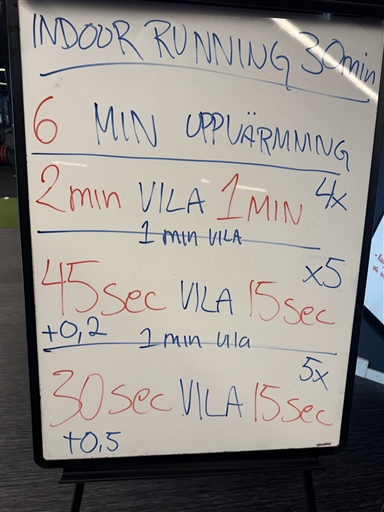 INDOOR RUNNING 30min
6 MIN UPPVÄRMNING
2min VILA 1MIN 4x
1 min VILA
45sec VILA 15sec x5
+0,2 1 min vila
30sec VILA 15sec 5x
+0,5